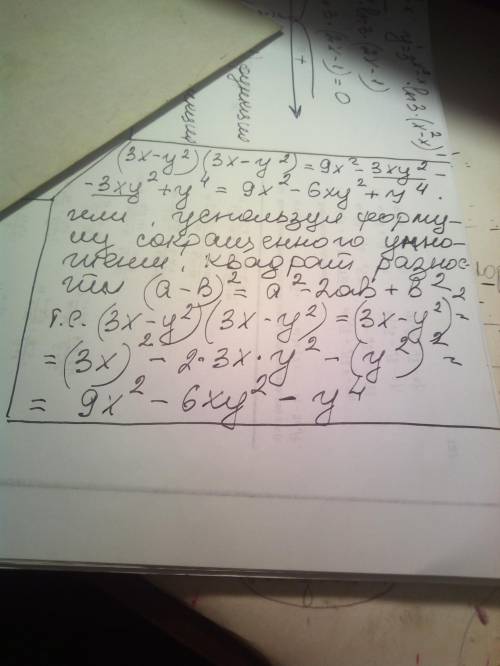 (3x-y²)(3x-y²)=9x²-3xy²-
-3xy²+y⁴=9x²-6xy²+y⁴.
или, используя форму-
лу сокращенного умно-
жения, квадрат разнос-
ти (a-b)²=a²-2ab+b²
т.е. (3x-y²)(3x-y²)=(3x-y²)²=
=(3x)²-2·3x·y²-(y²)²=
=9x²-6xy²-y⁴